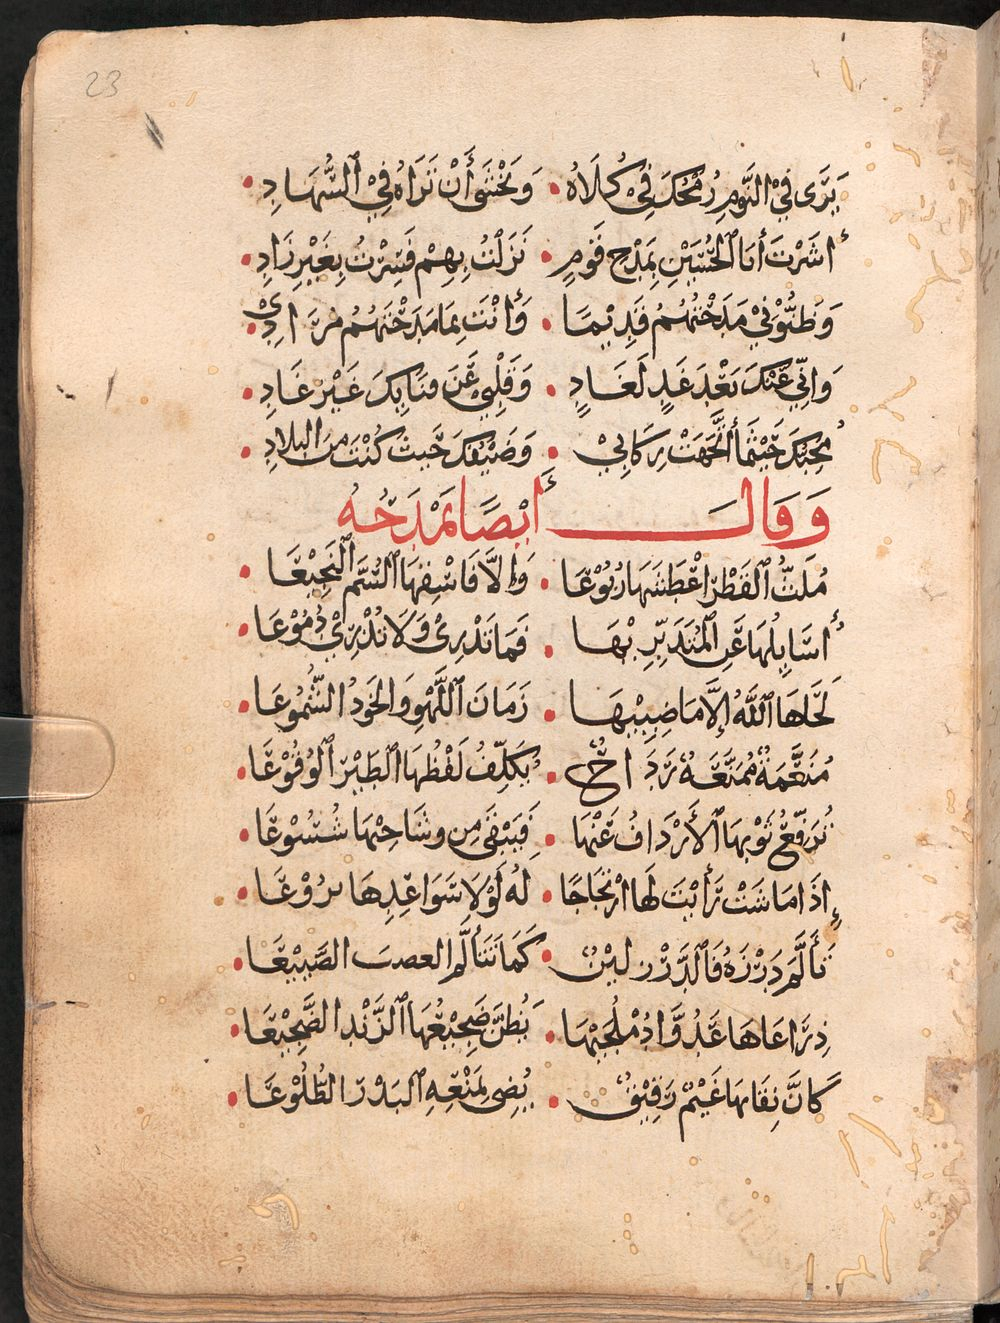 23
يَرَى فِيْ النَّوْمِ رُمْحَكَ فِيْ كُلَاهُ • وَيَخْشَى أَنْ تَرَاهُ فِيْ السُّهَادِ •
أشَرْتَ أبَا الحُسَيْنِ بِمَدْحِ قَومٍ • نَزَلْتُ بِهِمْ فَسِرْتُ بِغَيْرِ زَادِ •
وَظنُّوْنِيْ مَدَحْتُهُمُ قَدِيْمًا • وَأنْتَ بِمَا مَدَحْتَهُمُ مُرَادِيْ •
وَإنِّي عَنْكَ بَعْدَ غَدٍ لَغَادٍ • وَقَلْبِيْ عَنْ فنَايكَ غَيْرُ غَادِ •
مُحِبُّكَ حَيْثُمَا أتَّجَهَتْ رِكَابِيْ • وَضَيْفكَ حَيثُ كُنْتَ مِنَ البِلادِ •
وَقَالَ أيْضًا يَمْدَحُهُ
مُلِثَّ القَطْرِ اعْطِشْهَا رُبُوْعًا • وَإلَّا فَاسْقِهَا السُّمَّ النَّجِيْعَا •
أُسَايِلُهَا عَنِ المُتَدَيِّرِيْهَا • فَمَا تَدْرِيْ وَلَا تُذْرِيْ دُمُوْعَا •
لَحَاهَا اللهُ إلَّا مَاضِيَيْهَا • زَمَانَ اللَّهْوِ وَالخَوْدَ الشَّمُوعَا •
مُنَعَّمَةٌ مُمَنَّعَةٌ رَدَاحٌ • يُكَلِّفُ لَفْظُهَا الطَيْرَ الوُقُوْعَا •
تُرَفِّعُ ثَوْبَهَا الأرْدَافُ عَنْهَا • فَيَبْقَى مِن وِشَاحِيْهَا شَسُوْعَا •
إذَا مَاسَتْ رَأيْتَ لَهَا ارْتِجَاجًا • لَهُ لَوْلَا سَوَاعِدِهَا نزُوْعَا •
تَألَّمُ دَرْزَهُ وَالدَّرْزُ لَيِّنٌ • كَمَا تَتَألَّمُ العضبَ الصَّنِيْعَا •
ذِرَاعَاهَا عَدُوَّا دُمْلُجَيْهَا • يَظُنُّ ضَجِيْعُهَا الزَّنْدَ الضَّجِيْعَا •
كَانَّ نِقَابَهَا غَيْمٌ رَقِيْقٌ • يُضِي بِمَنْعِهِ البَدْرَ الطُلُوْعَا •